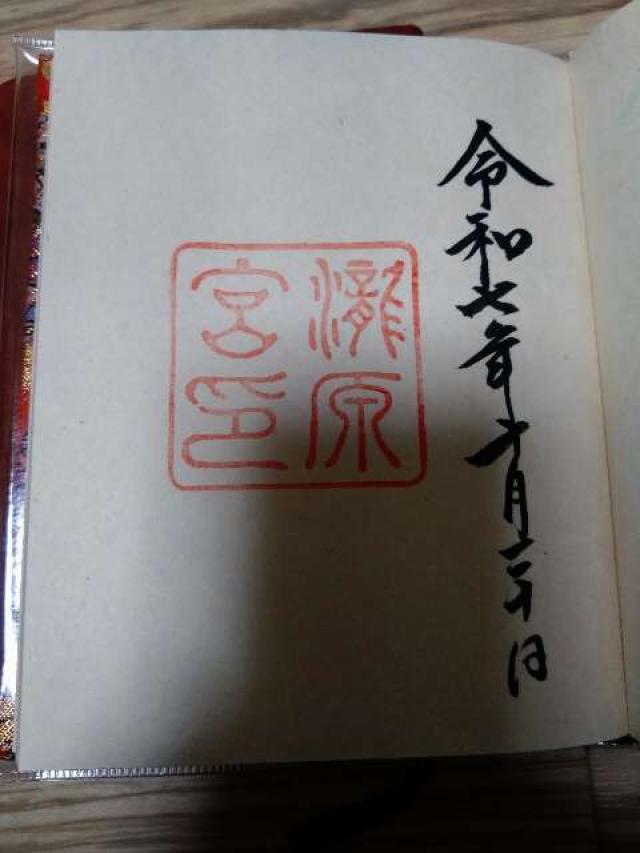 令和七年十月二十日
瀧原
宮印